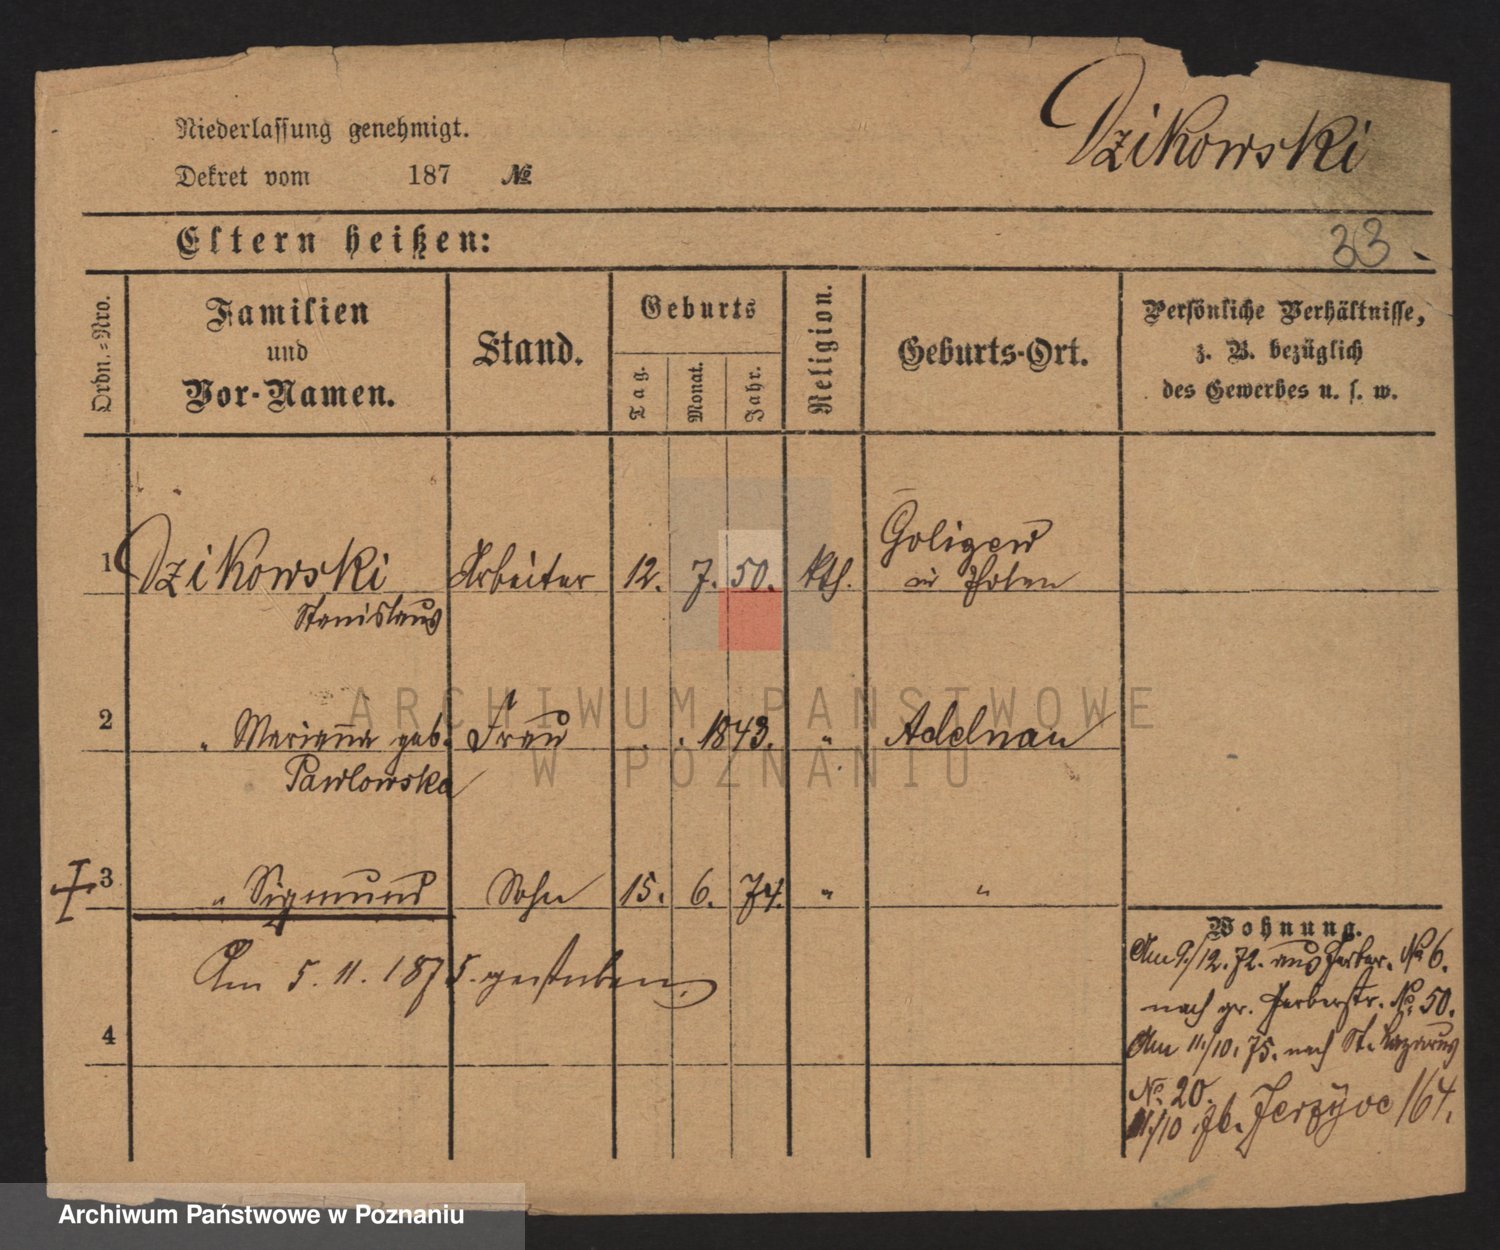 Dzikowski
Niederlassung genehmigt.
Dekret vom 187 №
Eltern heißen:
33.
Ordn.-Nro.
Familien
und
Vor-Namen.
Stand.
Geburts
Tag.
Monat.
Jahr.
Religion.
Geburts-Ort.
Persönliche Verhältnisse,
z. B. bezüglich
des Gewerbes u. s. w.
1 Dzikowski Arbeiter 12. 7. 50. kth.
in Polen
Stanislaus
2 " Marianna geb. Frau 1843. " Adelnau
Pawlowska
3 " Sigmund Sohn 15. 6. 74. " "
Am 5. 11. 1875. gestorben.
4
Wohnung.
Am 9/12. 72. aus Gerber. № 6.
nach gr. Gerberstr. No. 50.
Am 11/10. 75. nach St. Lazarus
No. 20.
11/10 76. Jerzyce 164.
ARCHIWUM PAŃSTWOWE
W POZNANIU
Archiwum Państwowe w Poznaniu